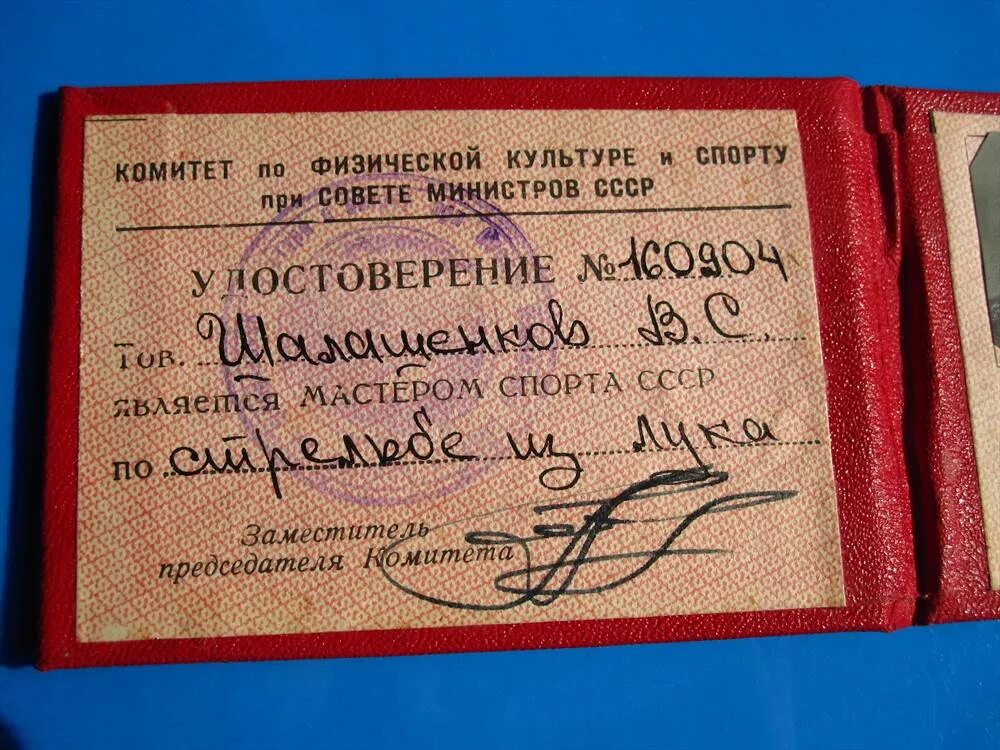 КОМИТЕТ по ФИЗИЧЕСКОЙ КУЛЬТУРЕ и СПОРТУ
при СОВЕТЕ МИНИСТРОВ СССР
УДОСТОВЕРЕНИЕ №160904
Тов. Шалашенков В.С.
является МАСТЕРОМ СПОРТА СССР
по стрельбе из лука
Заместитель
председателя Комитета